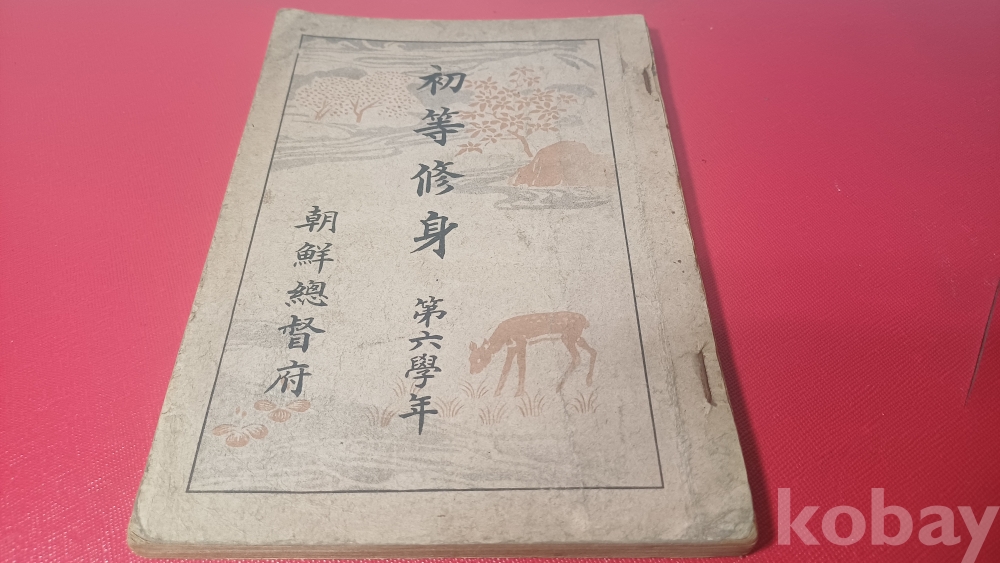 初等修身 第六學年
朝鮮總督府
kobay